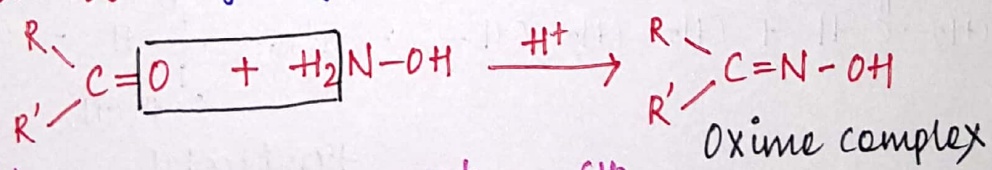 R R
C=O + H₂N-OH H⁺ → C=N-OH
R' R'
Oxime complex